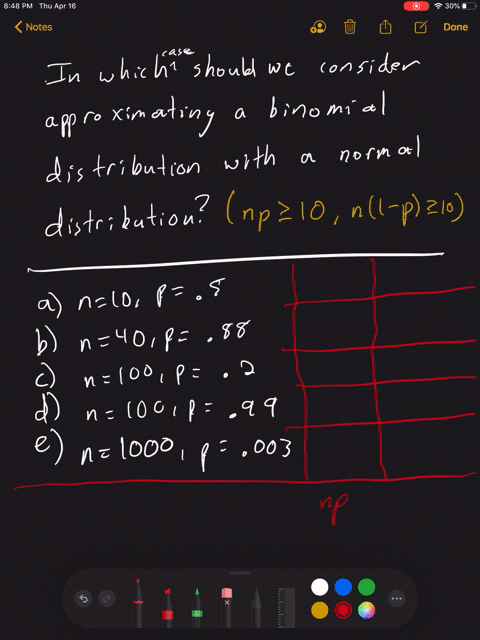 8:48 PM Thu Apr 16
30%
Notes
Done
In which case should we consider
approximating a binomial
distribution with a normal
distribution? (np ≥ 10, n(1-p) ≥ 10)
a) n=10, p = .5
b) n=40, p = .88
c) n=100, p = .2
d) n=100, p = .99
e) n=1000, p = .003
np